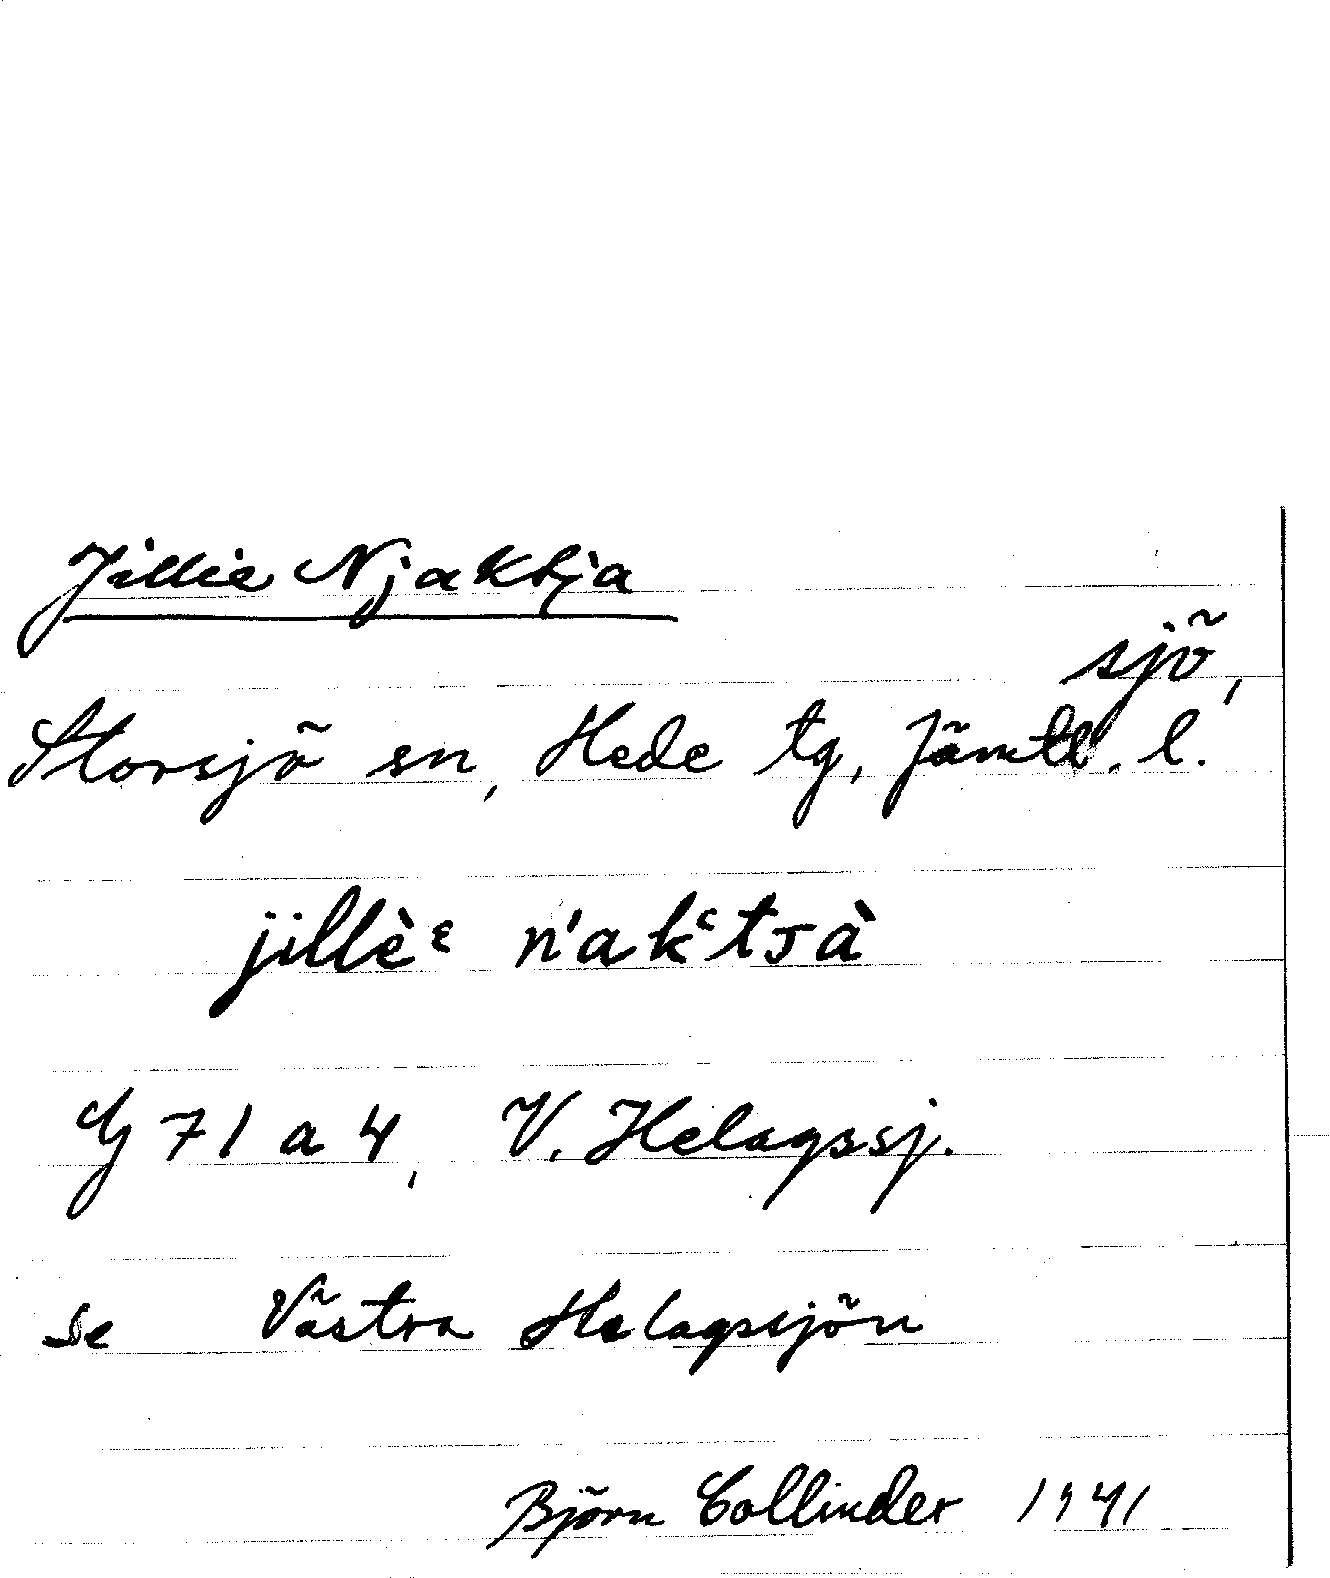 Jillie Njaktja
sjö,
Storsjö sn, Hede tg, Jämtl. l.
jillèᵋ ńak‘tɪà
G 71 a 4, V. Helagssj.
se Västra Helagssjön
Björn Collinder 1941